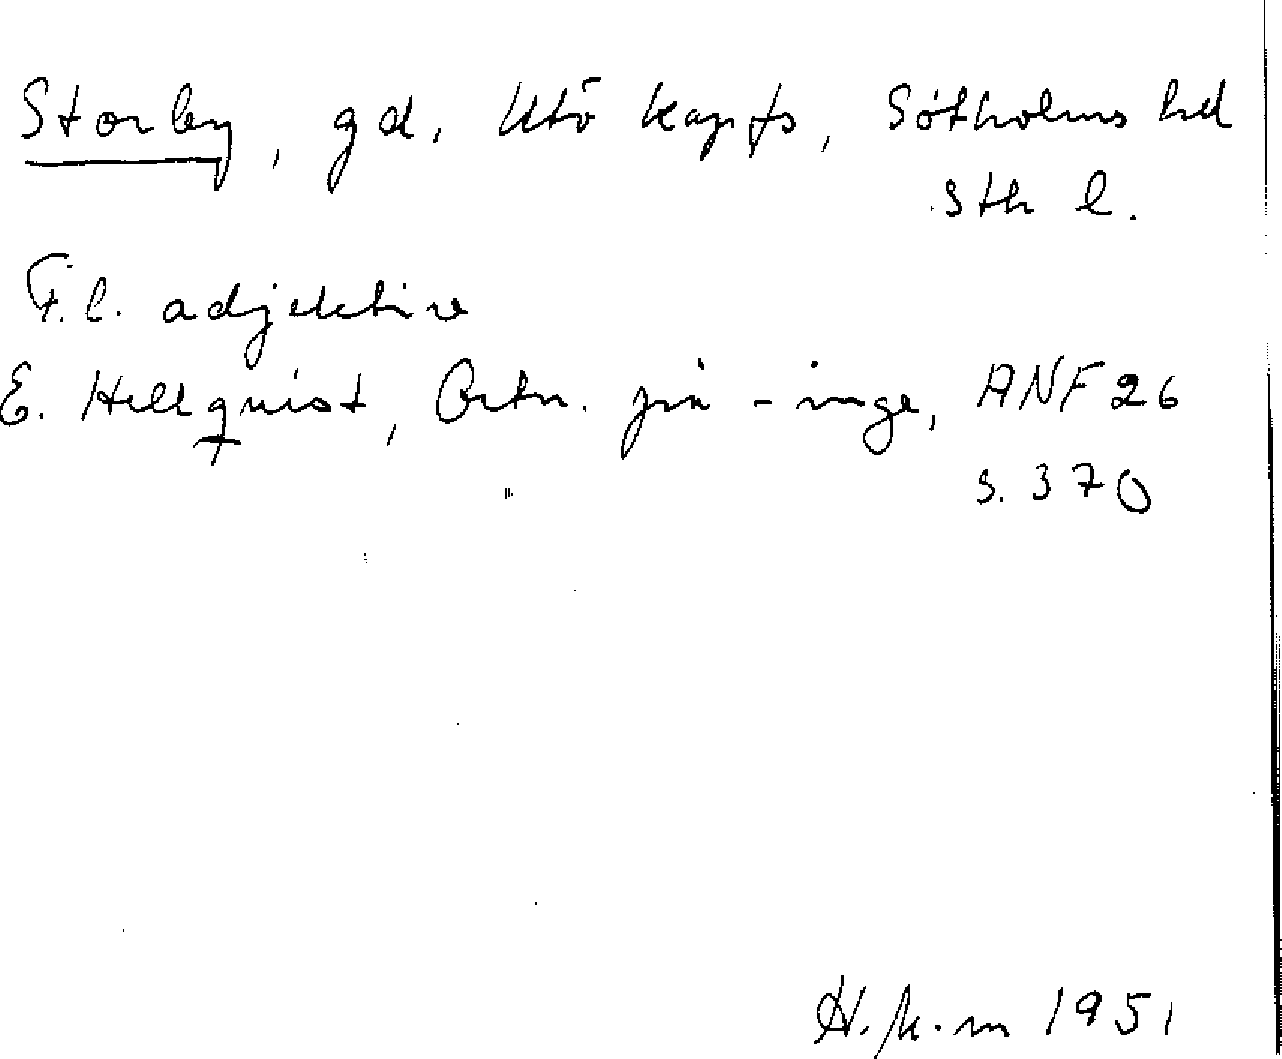 Storby, gd, Utö kapfs, Sotholms hd
Sth l.
F.l. adjektive
E. Hellquist, Ortn. på -inge, ANF 26
s. 370
1951